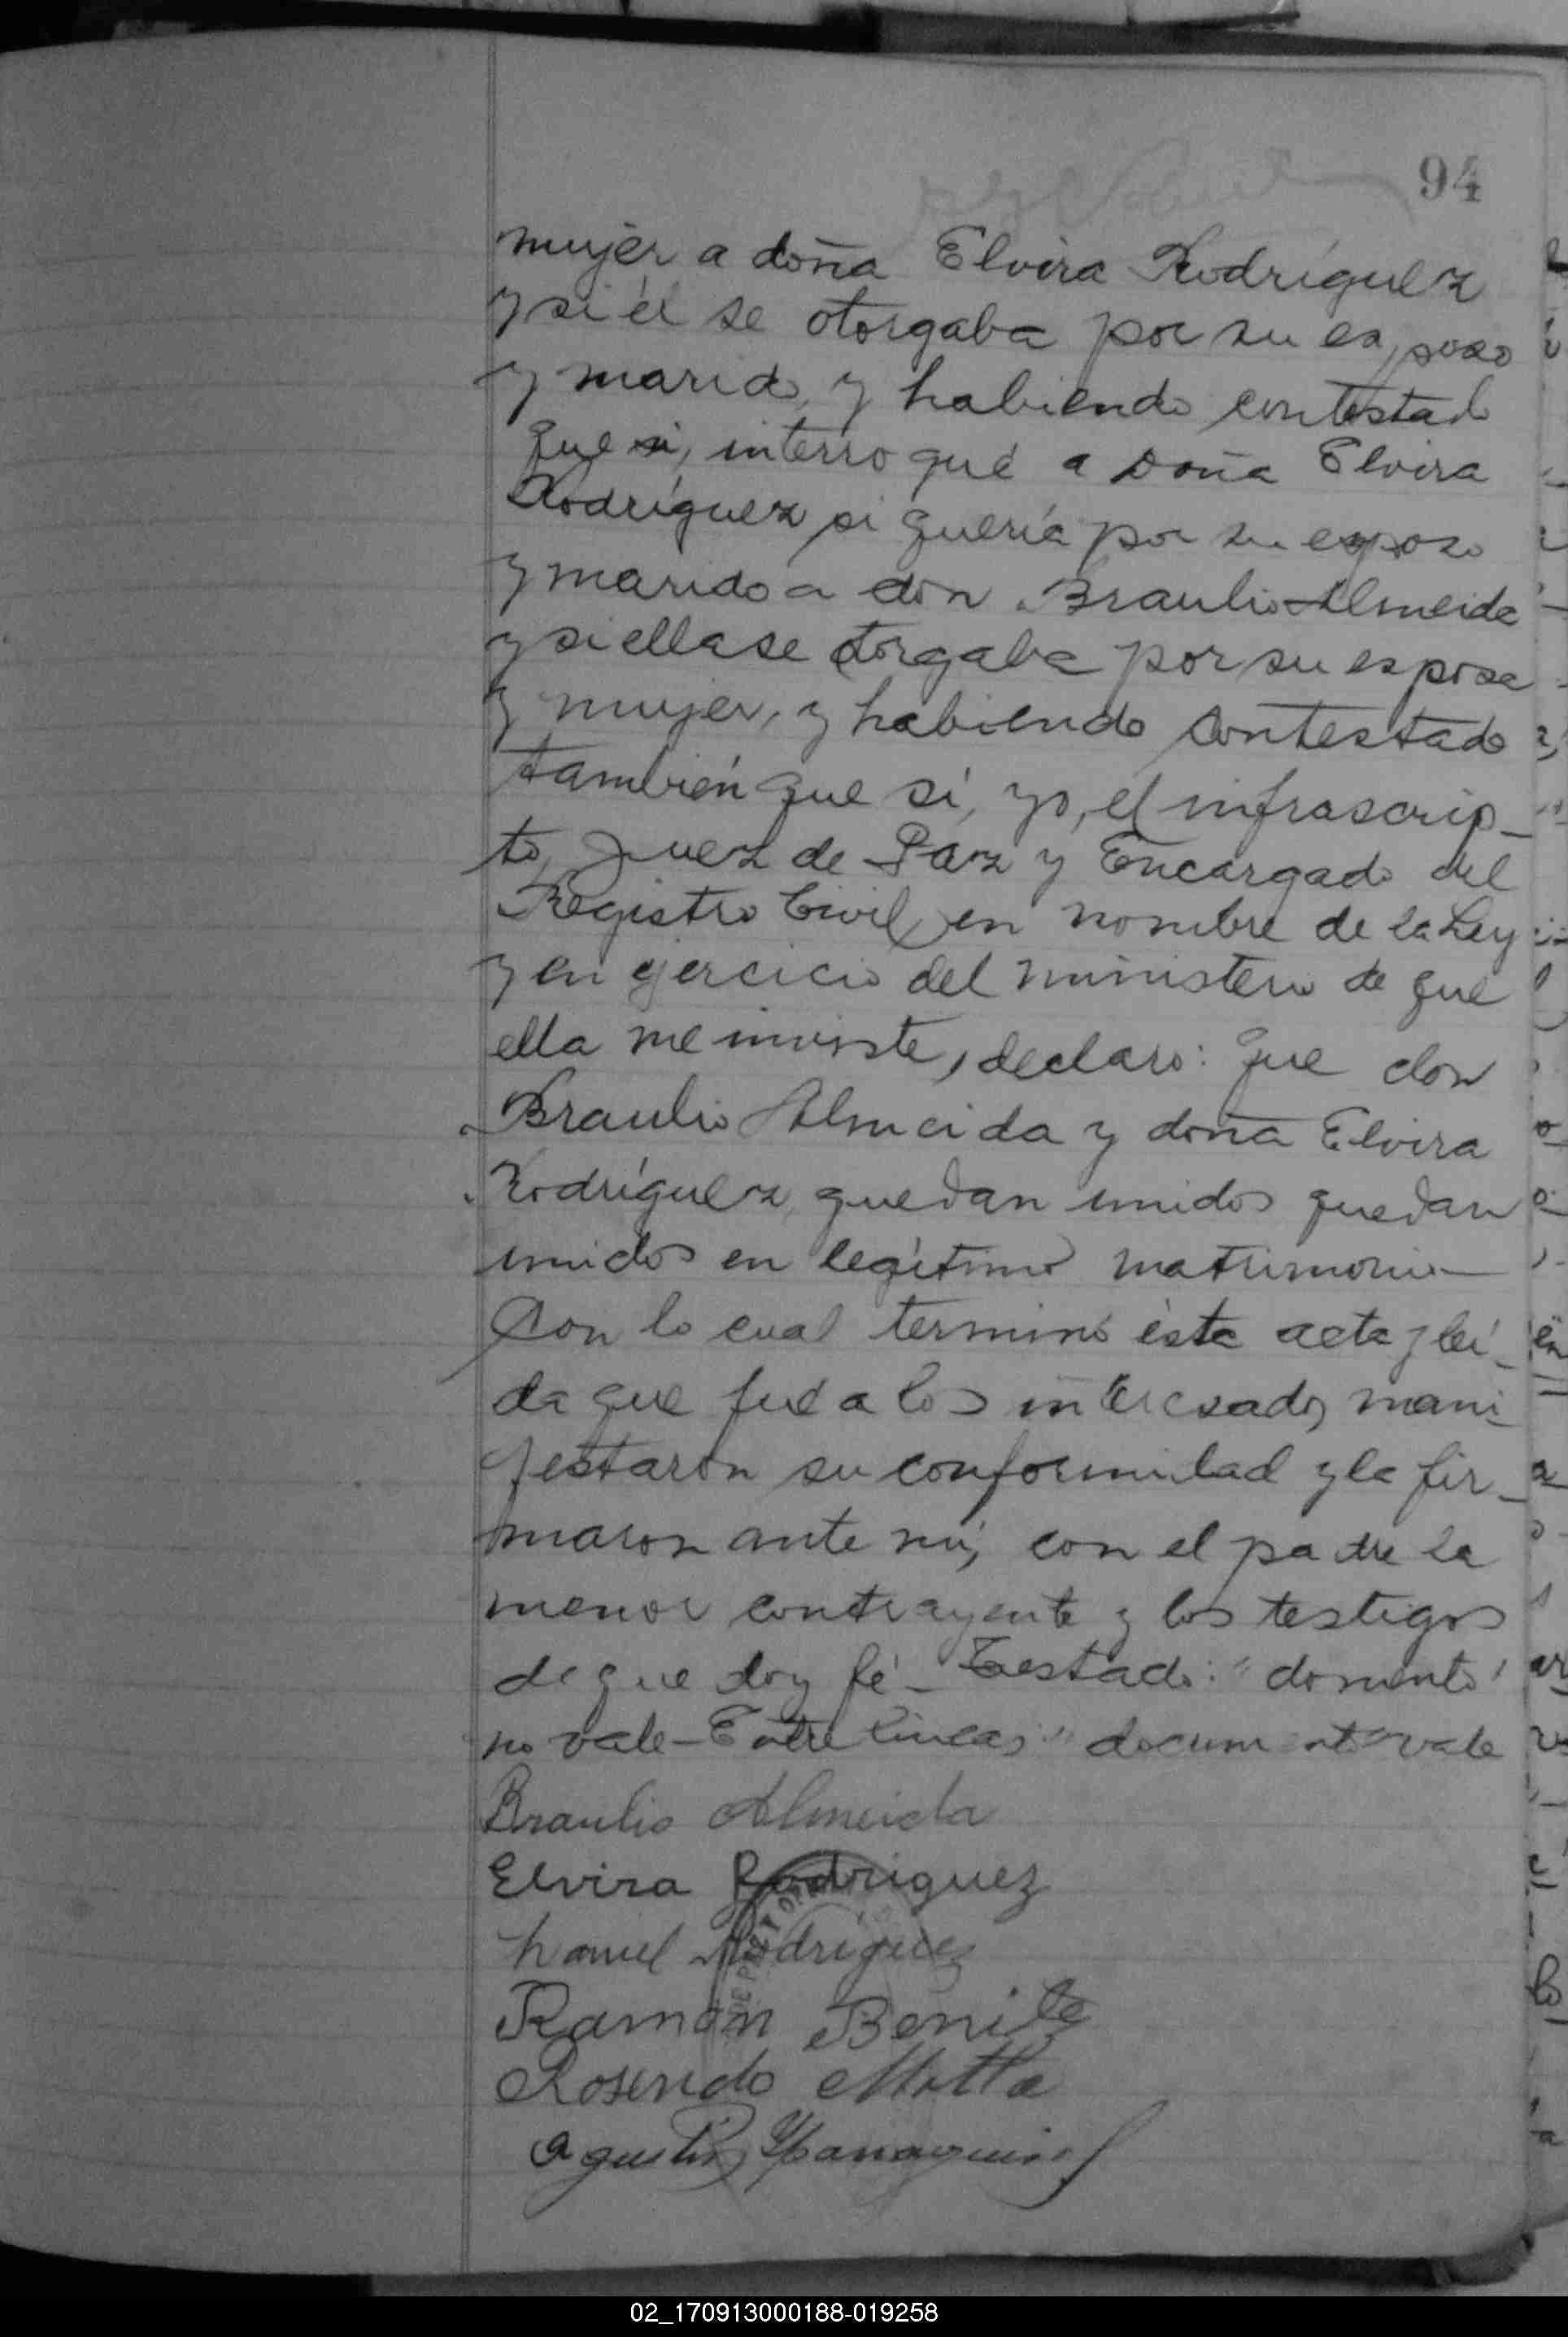 94
mujer a doña Elvira Rodríguez
y si él se otorgaba por su esposo
y marido, y habiendo contestado
que si, interrogué a Doña Elvira
Rodríguez si quería por su esposo
y marido a don Braulio Almeida
y si ella se otorgaba por su esposa
y mujer, y habiendo contestado
también que sí, yo, el infrascrip-
to, Juez de Paz y Encargado del
Registro Civil, en nombre de la Ley
y en ejercicio del ministerio de que
ella me inviste, declaro: que don
Braulio Almeida y doña Elvira
Rodríguez, quedan unidos quedan
unidos en legítimo matrimonio
Con lo cual terminó ésta acta y leí-
da que fué a los interesados, mani-
festaron su conformidad y la fir-
maron ante mí, con el padre la
menor contrayente y los testigos
de que doy fé - Testado: "domento"
no vale - Entre líneas: "documento" vale
Braulio Almeida
Elvira Rodriguez
Manuel Rodríguez
Ramón Benite
Rosendo Motta
Agustin
DE PAZ
02_170913000188-019258